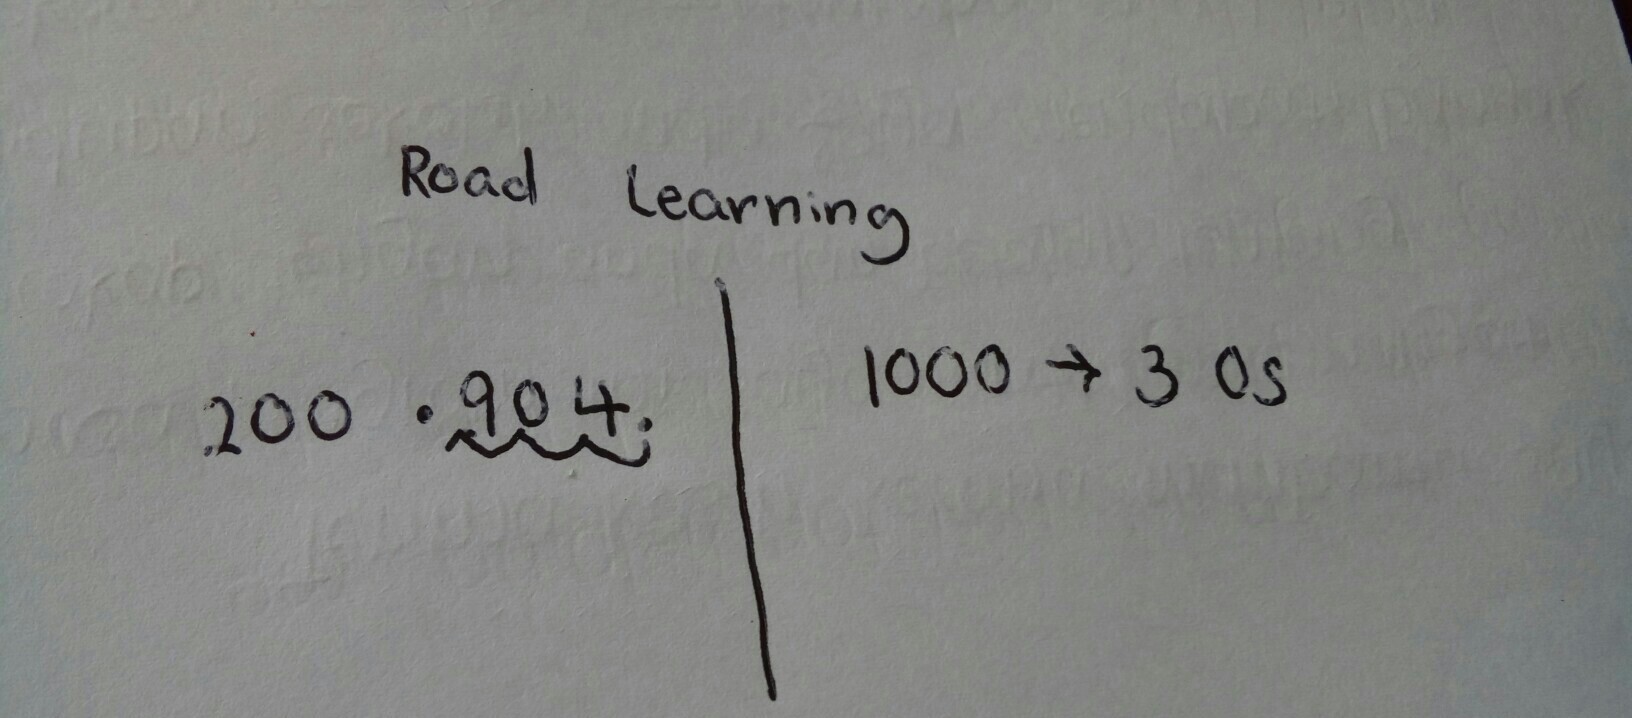 Road Learning
200 .904.
1000 → 3 0s